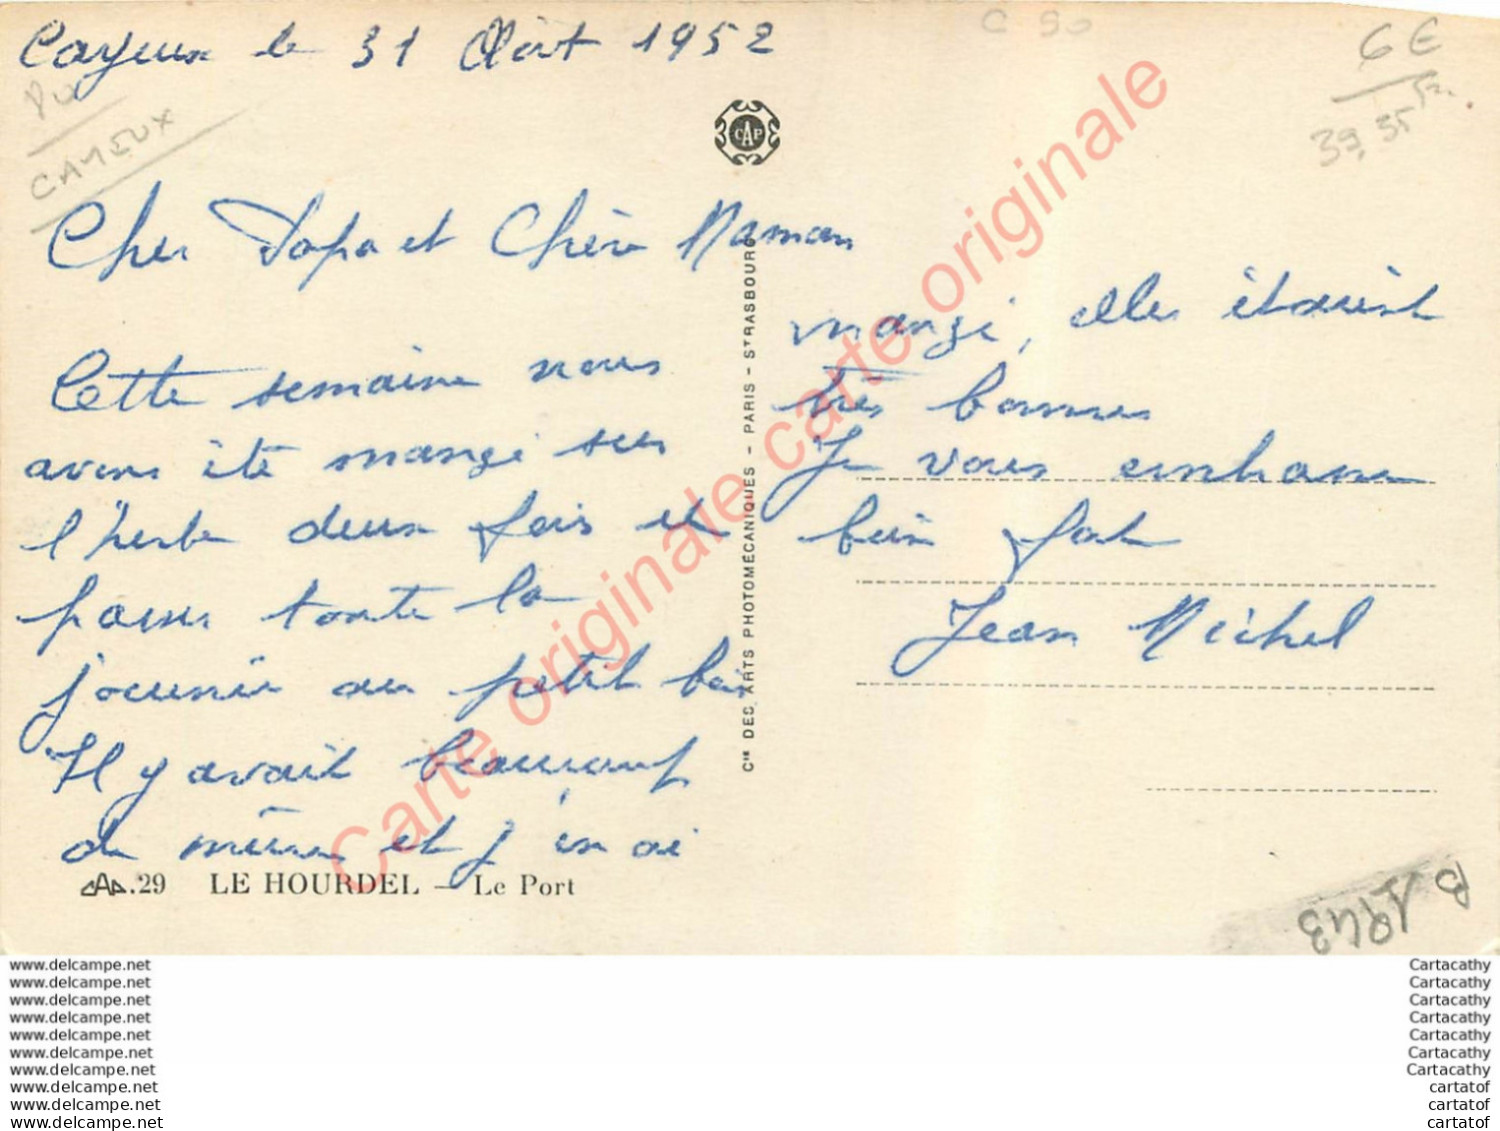 Cayeux le 31 Août 1952
C 90
6 €
39,35
CAYEUX
CAP
Cher Papa et Chère Maman
Cette semaine nous
avons été mangé sur
l'herbe deux fois et
passer toute la
journée au petit bois
Il y avait beaucoup
de mûres et j'en ai
mangé, elles étaient
très bonnes
Je vous embrasse
bien fort
Jean Michel
CAP.29 LE HOURDEL — Le Port
Cie DES ARTS PHOTOMÉCANIQUES - PARIS - STRASBOURG
Carte originale carte originale carte originale
B 1843
www.delcampe.net
www.delcampe.net
www.delcampe.net
www.delcampe.net
www.delcampe.net
www.delcampe.net
www.delcampe.net
www.delcampe.net
www.delcampe.net
www.delcampe.net
Cartacathy
Cartacathy
Cartacathy
Cartacathy
Cartacathy
Cartacathy
Cartacathy
cartatof
cartatof
cartatof